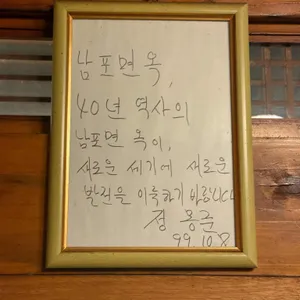 남포면옥,
40년 역사의
남포면옥이,
새로운 세기에 새로운
발전을 이룩하기 바랍니다
정 몽준
99. 10. 8